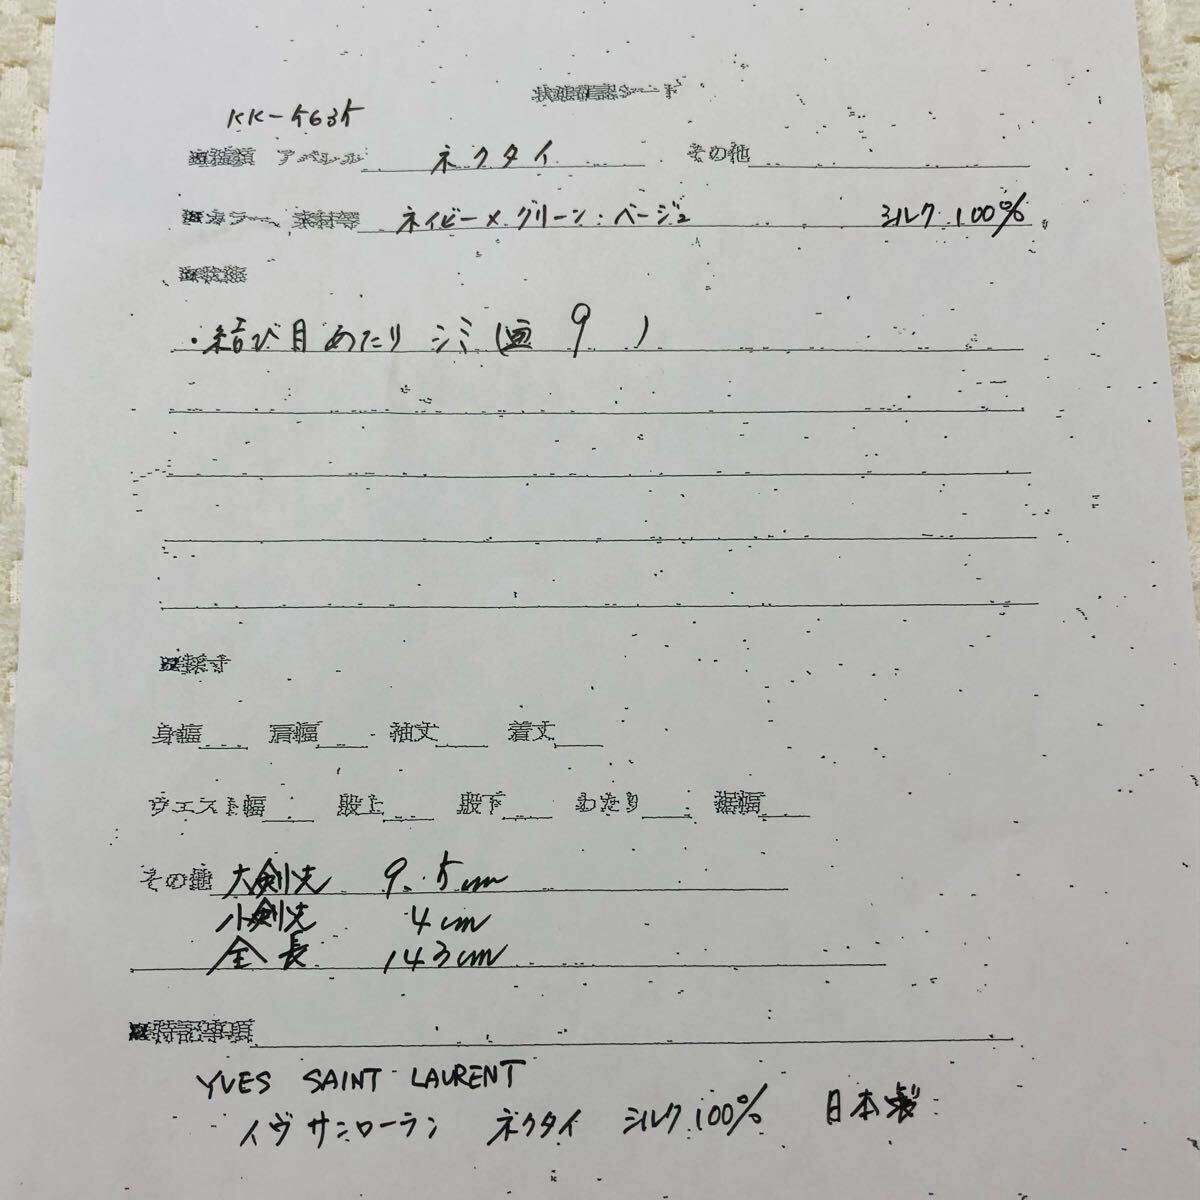 状態確認シート
KK-5635
■種類 アパレル ネクタイ その他
■カラー、素材等 ネイビー×グリーン・ベージュ シルク 100%
■状態
・結び目あたり シミ(画 9 )
■採寸
身幅 肩幅 袖丈 着丈
ウエスト幅 股上 股下 わたり 裾幅
その他 大剣先 9.5cm
小剣先 4cm
全長 143cm
■特記事項
YVES SAINT LAURENT
イヴサンローラン ネクタイ シルク100% 日本製